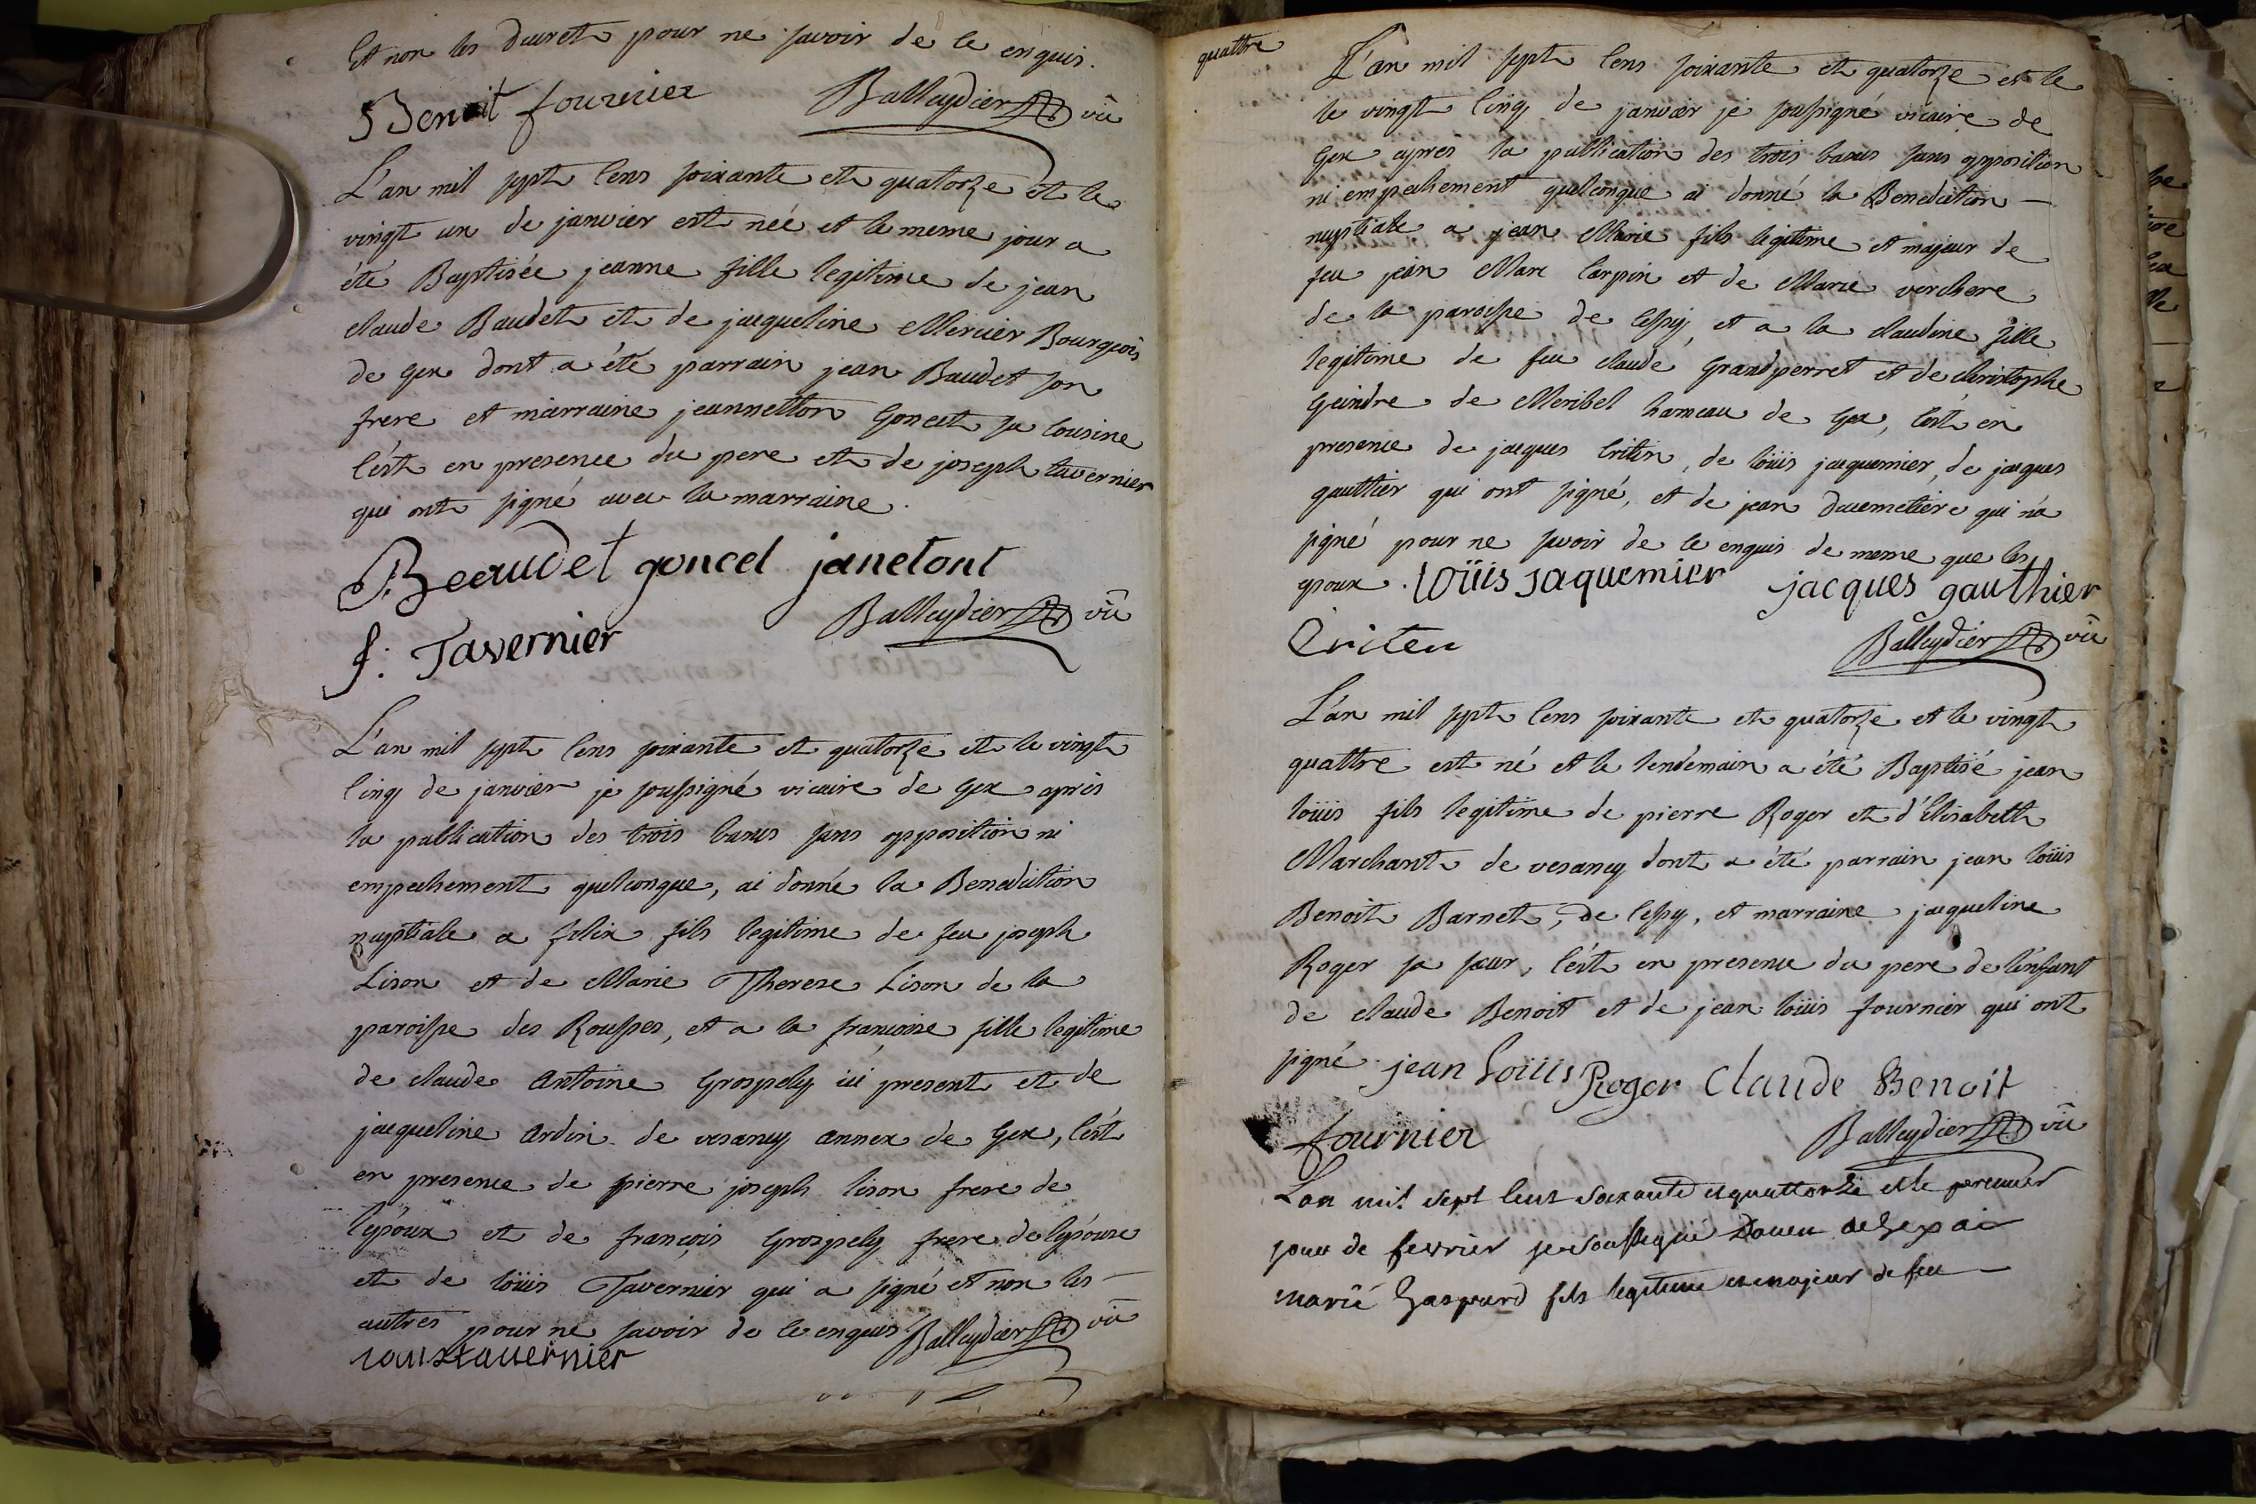 Et non les ducret pour ne savoir de ce enquis.
Benoit fournier Balleydier vic
L'an mil sept cens soixante et quatorze et le
vingt un de janvier est née et le meme jour a
été Baptisée jeanne fille legitime de jean
claude Baudet et de jacqueline Mercier Bourgeois
de gex dont a été parrain jean Baudet son
frere et marraine jeannetton Goncet sa cousine
c'est en presence du pere et de joseph tavernier
qui ont signé avec la marraine.
Beaudet goncel janetont
Balleydier vic
f: Tavernier
L'an mil sept cens soixante et quatorze et le vingt
cinq de janvier je soussigné vicaire de gex apres
la publication des trois bancs sans opposition ni
empechement quelconque, ai donné la Benediction
nuptiale a felix fils legitime de feu joseph
Lison et de Marie Therese Lison de la
paroisse des Rousses, et a la francoise fille legitime
de claude Antoine Grospely ici present et de
jacqueline Ardin de vesancy annex de Gex, c'est
en presence de pierre joseph lison frere de
l'epoux et de françois Grospely frere de l'epouse
et de loüis Tavernier qui a signé et non les
autres pour ne savoir de ce enquis Balleydier vic
louis tauernier
quattre
L'an mil sept cens soixante et quatorze et le
le vingt cinq de janvier je soussigné vicaire de
Gex apres la publication des trois bancs sans opposition
ni empechement quelconque ai donné la Benediction
nuptiale a jean Marie fils legitime et majeur de
feu jean Marc Carpin et de Marie verchere
de la paroisse de Cessy, et a la claudine fille
legitime de feu claude Grandperret et de christophe
Geindre de Meribel hameau de Gex, c'est en
presence de jacques Critin, de loüis jacquemier, de jacques
gauttier qui ont signé, et de jean ducemetiere qui n'a
signé pour ne savoir de ce enquis de meme que les
epoux. loüis jaquemier jacques gauthier
Criten Balleydier vic
L'an mil sept cens soixante et quatorze et le vingt
quattre est né et le lendemain a été Baptisé jean
loüis fils legitime de pierre Roger et d'Elisabeth
Marchant de vesancy dont a été parrain jean loüis
Benoit Barnet, de Cessy, et marraine jacqueline
Roger sa sœur, c'est en presence du pere de l'enfant
de claude Benoit et de jean loüis fournier qui ont
signé. jean loüis Roger Claude Benoit
fournier Balleydier vic
L'an mil sept cent soixante et quattorze et le premier
jour de fevrier je soussigné Doyen de Gex ai
marié Gaspard fils legitime et majeur de feu